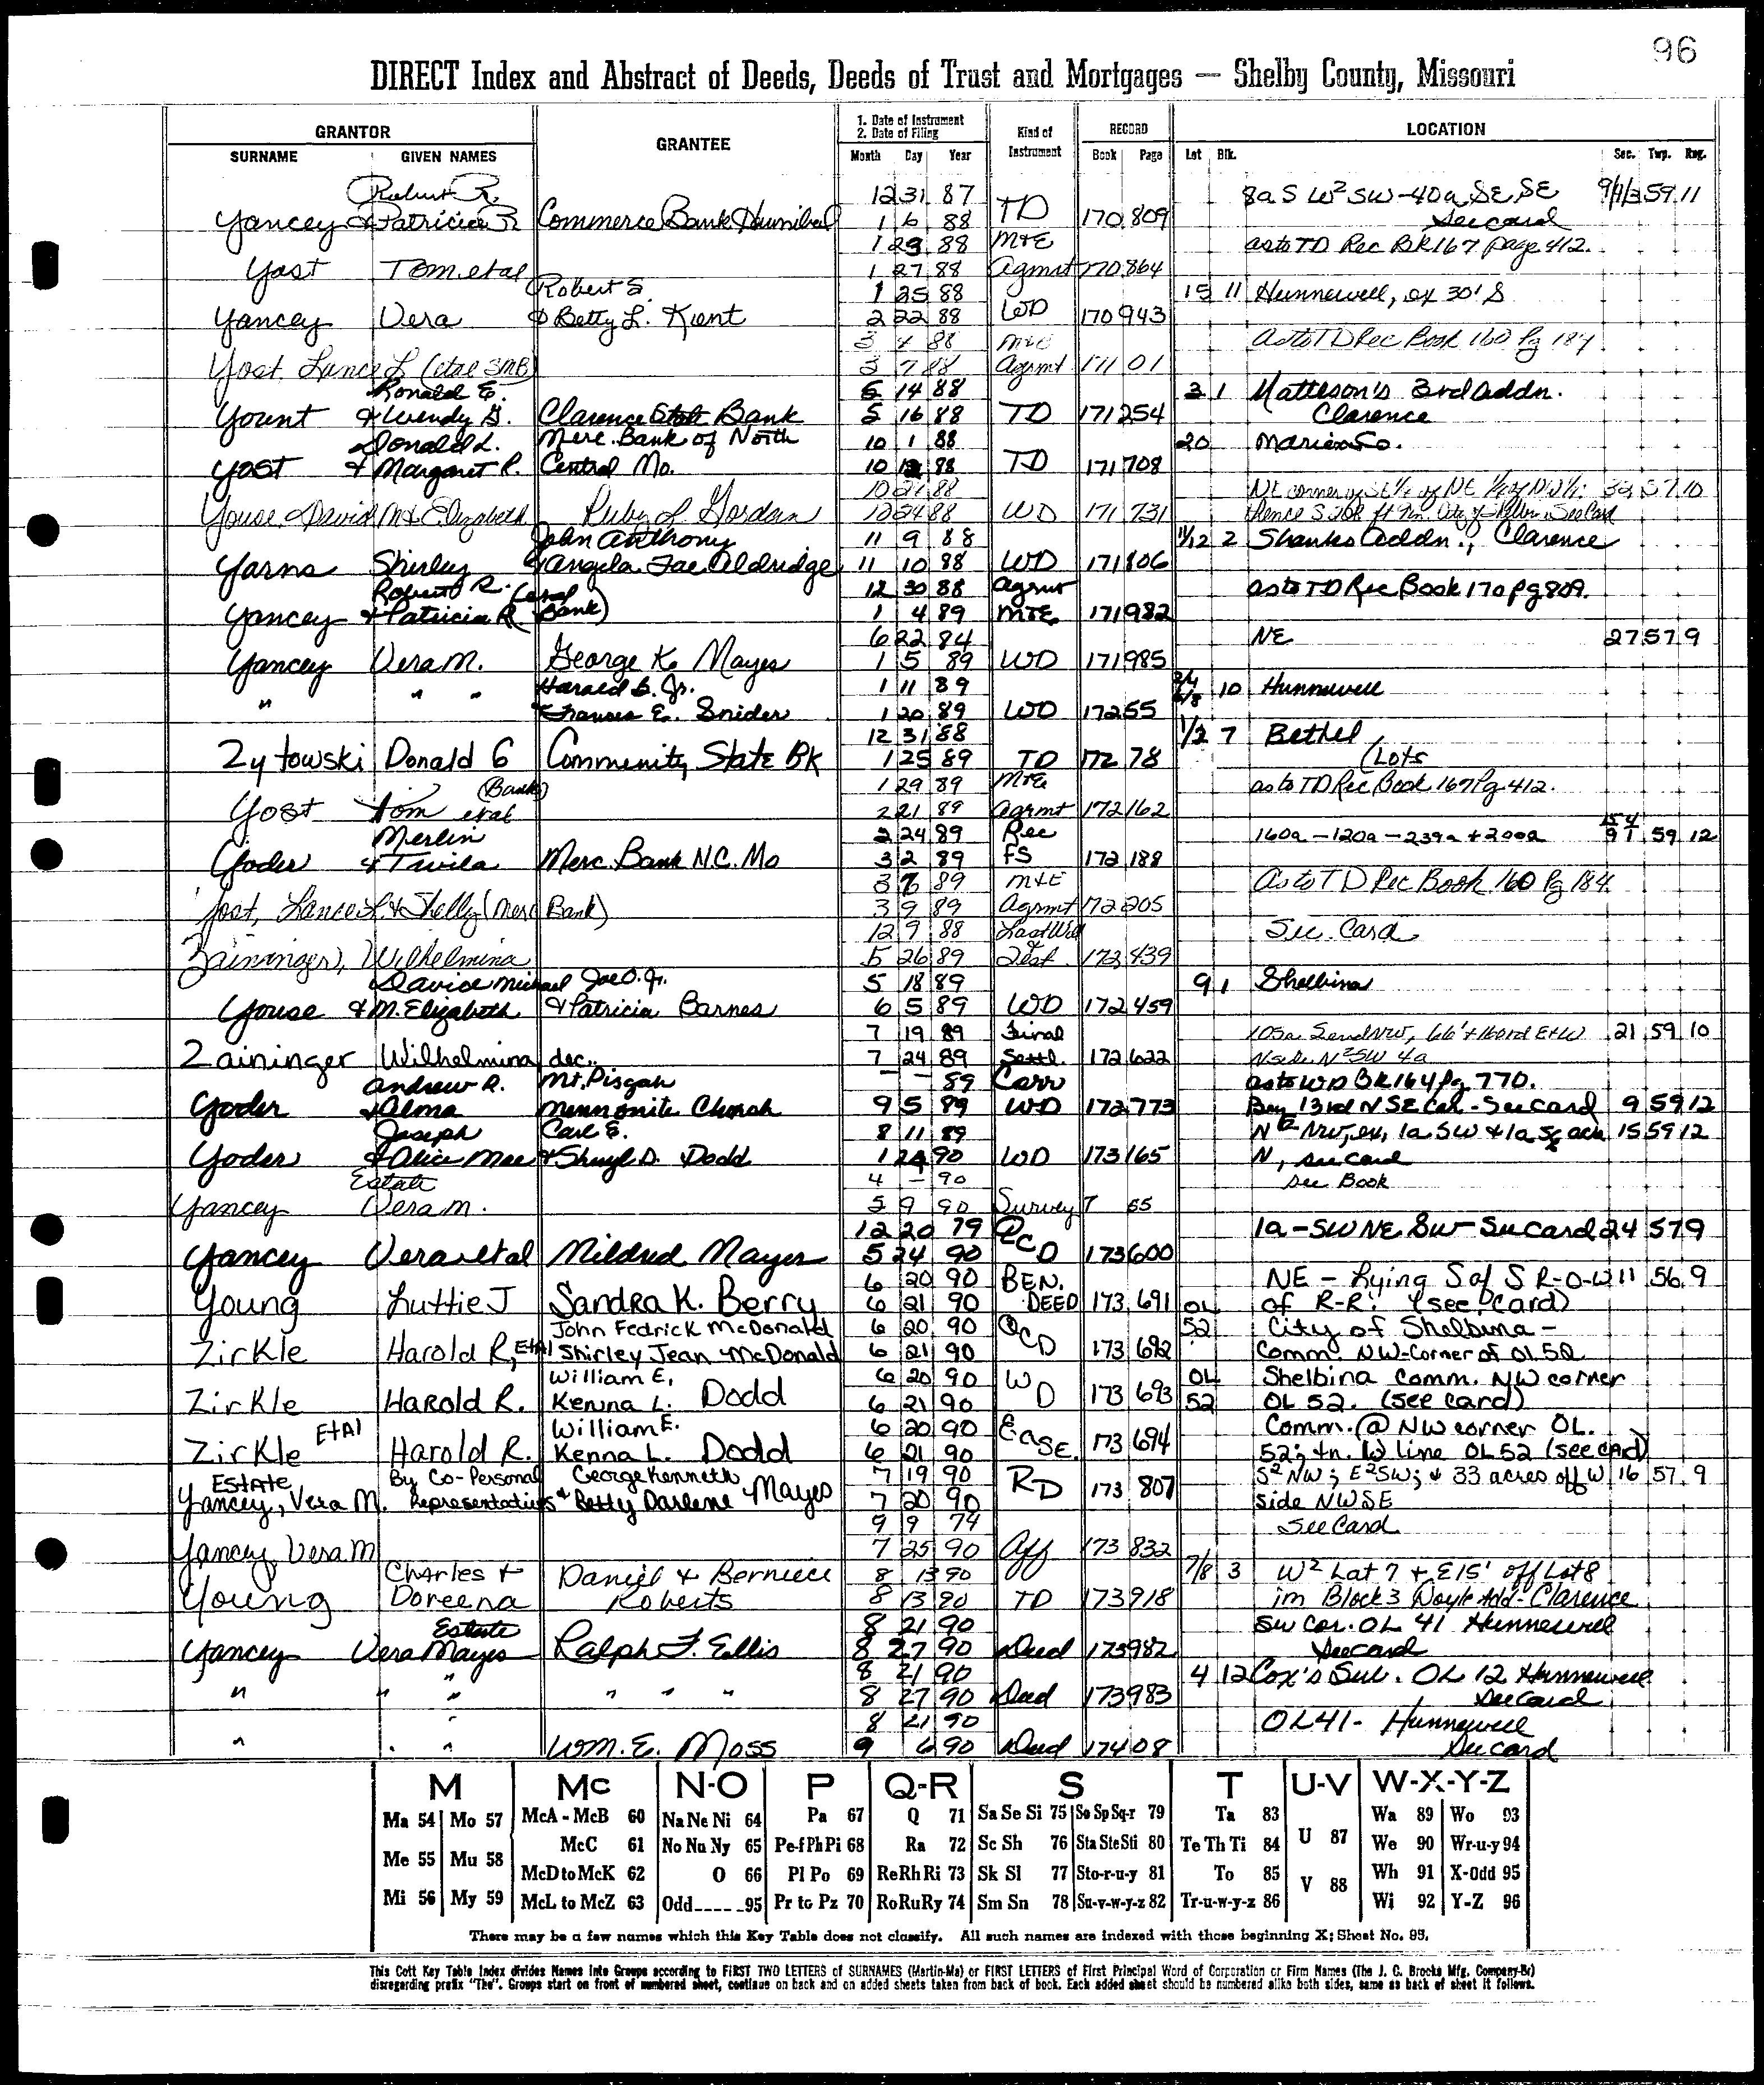 96
DIRECT Index and Abstract of Deeds, Deeds of Trust and Mortgages — Shelby County, Missouri
GRANTOR GRANTEE 1. Date of Instrument 2. Date of Filing Kind of Instrument RECORD LOCATION
SURNAME GIVEN NAMES Month Day Year Book Page Lot Blk. Sec. Twp. Rng.
Robert R. 12 31 87 8a S W² SW-40a SE SE 59 11
Yancey & Patricia R Commerce Bank Hannibal 1 6 88 TD 170 809 See card
1 29 88 M&E as to TD Rec BK 167 page 412.
Yost Tom etal 1 27 88 Agmnt 170 864
Robert S. 1 25 88 15 11 Hunnewell, ex 30' S
Yancey Vera & Betty L. Kient 2 22 88 WD 170 943
3 4 88 M&E As to TD Rec Book 160 Pg 184
Yost Lance L (etal SMB) 3 7 88 Agrmt 171 01
Ronald E. 5 14 88 3 1 Matteson's 3rd Addn.
Yount & Wendy G. Clarence State Bank 5 16 88 TD 171 254 Clarence
Donald L. Merc. Bank of North 10 1 88 20 Marion Co.
Yost & Margaret R. Central Mo. 10 12 88 TD 171 708
10 21 88 NE corner of SE 1/4 of NE 1/4 of NW 1/4 32 57 10
Youse David M & Elizabeth Ruby L Gordon 10 24 88 WD 171 731 thence S 208 ft See Card
John Anthony 11 9 88 11/12 2 Shanks Addn., Clarence
Yarns Shirley & Angela Fae Aldridge 11 10 88 WD 171 806
Robert R. (and 12 30 88 Agmt as to TD Rec Book 170 pg 809.
Yancey & Patricia R. Bank) 1 4 89 M&E 171 982
6 22 84 NE 27 57 9
Yancey Vera M. George K. Mayes 1 5 89 WD 171 985
" " " Harold B. Jr. 1 11 89 10 Hunnewell
& Frances E. Snider 1 20 89 WD 172 55
12 31 88 1/2 7 Bethel
Zytowski Donald G Community State BK 1 25 89 TD 172 78 (Lots
(Bank) 1 29 89 M&E as to TD Rec Book 167 Pg 412.
Yost Tom etal 2 21 89 Agrmt 172 162
Merlin 2 24 89 Rec 160a-120a-239a+200a 59 12
Yoder & Twila Merc. Bank N.C. Mo 3 2 89 FS 172 188
3 7 89 M&E As to TD Rec Book 160 Pg 184
Yost, Lance L. & Shelly (Merc Bank) 3 9 89 Agrmt 172 205
12 9 88 Last Will See Card
Zaininger, Wilhelmina 5 26 89 Test. 173 439
David Michael Joe O. Jr. 5 18 89 9 1 Shelbina
Youse & M. Elizabeth & Patricia Barnes 6 5 89 WD 172 459
7 19 89 Final 105a S end NW, 66' + 160rd E&W 21 59 10
Zaininger Wilhelmina dec. 7 24 89 Settl. 172 622 N side N²SW 4a
Andrew R. Mt. Pisgah — — 89 Corr as to WD BK 164 Pg 770.
Yoder & Alma Mennonite Church 9 5 89 WD 172 773 Beg 13rd N SE Cor - See card 9 59 12
Joseph Carl E. 8 11 89 N² NW, ex, 1a SW & 1a 15 59 12
Yoder & Alice Mae & Sheryl D. Dodd 1 24 90 WD 173 165 N, see card
Estate 4 — 90 See Book
Yancey Vera M. 5 9 90 Survey 7 55
12 20 79 1a-SW NE SW - See card 24 57 9
Yancey Vera etal Mildred Mayes 5 24 90 QCD 173 600
6 20 90 BEN. NE - Lying S of S R-O-W 11 56 9
Young Luttie J Sandra K. Berry 6 21 90 DEED 173 691 OL of R-R. (see card)
John Fedrick McDonald 6 20 90 52 City of Shelbina -
Zirkle Harold R, EtAl Shirley Jean McDonald 6 21 90 QCD 173 692 Comm. NW-Corner of OL 52
William E. 6 20 90 OL Shelbina Comm. NW corner
Zirkle Harold R. Kenna L. Dodd 6 21 90 WD 173 693 52 OL 52. (see card)
EtAl William E. 6 20 90 Comm. @ NW corner OL.
Zirkle Harold R. Kenna L. Dodd 6 21 90 Ease. 173 694 52; tn. W line OL 52 (see card)
ESTATE By Co-Personal George Kenneth 7 19 90 S² NW; E² SW; & 33 acres off W 16 57 9
Yancey, Vera M. Representatives & Betty Darlene Mayes 7 20 90 RD 173 807 side NWSE
9 9 74 See Card
Yancey, Vera M 7 25 90 Aff 173 832
Charles & Daniel & Berniece 8 13 90 7/8 3 W² Lot 7 + E 15' off Lot 8
Young Doreena Roberts 8 13 90 TD 173 918 in Block 3 Doyle Add - Clarence
Estate 8 21 90 SW Cor. OL 41 Hunnewell
Yancey Vera Mayes Ralph F. Ellis 8 27 90 Deed 173 982 See card
8 21 90 4 12 Cox's Sub. OL 12 Hunnewell
" " " " " " 8 27 90 Deed 173 983 See Card
" 8 21 90 OL 41 - Hunnewell
" " " Wm. E. Moss 9 6 90 Deed 174 08 See card
M Mc N-O P Q-R S T U-V W-X-Y-Z
Ma 54 Mo 57 McA - McB 60 Na Ne Ni 64 Pa 67 Q 71 Sa Se Si 75 So Sp Sq-r 79 Ta 83 U 87 Wa 89 Wo 93
Me 55 Mu 58 McC 61 No Nu Ny 65 Pe-f Ph Pi 68 Ra 72 Sc Sh 76 Sta Ste Sti 80 Te Th Ti 84 We 90 Wr-u-y 94
McD to McK 62 O 66 Pl Po 69 Re Rh Ri 73 Sk Sl 77 Sto-r-u-y 81 To 85 V 88 Wh 91 X-Odd 95
Mi 56 My 59 McL to McZ 63 Odd-----95 Pr to Pz 70 Ro Ru Ry 74 Sm Sn 78 Su-v-w-y-z 82 Tr-u-w-y-z 86 Wi 92 Y-Z 96
There may be a few names which this Key Table does not classify. All such names are indexed with those beginning X; Sheet No. 95.
This Cott Key Table Index divides Names into Groups according to FIRST TWO LETTERS of SURNAMES (Martin-Ma) or FIRST LETTERS of First Principal Word of Corporation or Firm Names (The J. C. Brooks Mfg. Company-Br)
disregarding prefix "The". Groups start on front of numbered sheet, continue on back and on added sheets taken from back of book. Each added sheet should be numbered alike both sides, same as back of sheet it follows.